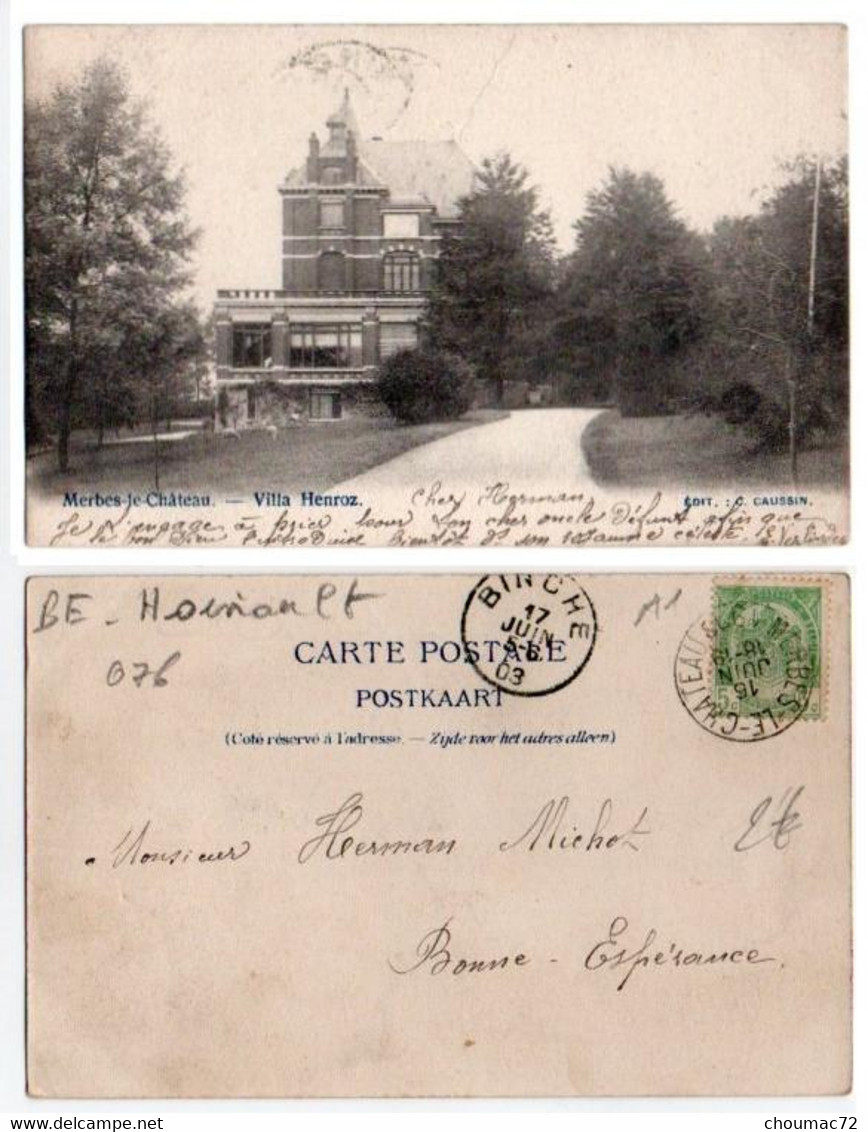 Merbes-le-Château. — Villa Henroz.
ÉDIT. : C. CAUSSIN.
Cher Herman,
Je m'engage à prier pour ton cher oncle défunt afin que
le bon Dieu l'introduise bientôt ds son royaume céleste.
BE - Hainault
076
A1
BINCHE
17
JUIN
5-6
03
MERBES-LE-CHATEAU
16
JUIN
18-19
CARTE POSTALE
POSTKAART
(Coté réservé à l'adresse. — Zijde voor het adres alleen)
Monsieur Herman Michot
2€
Bonne-Espérance.
© choumac72